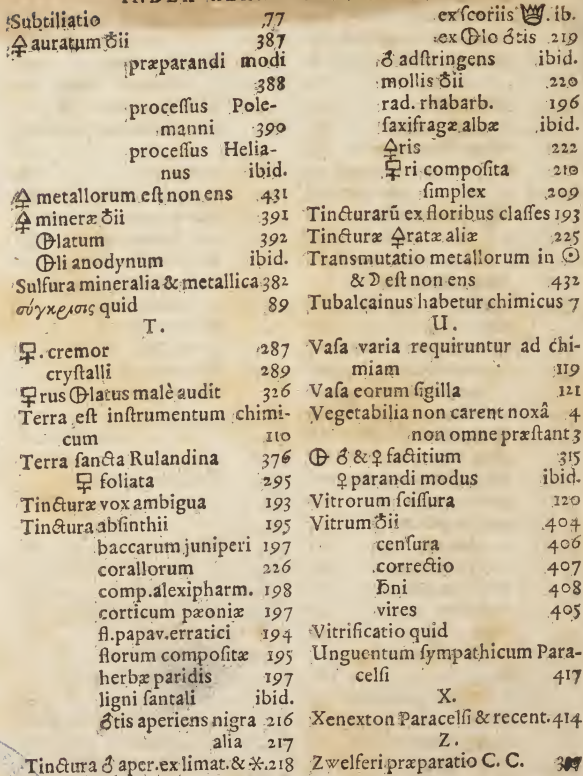 Subtiliatio 77
🜍 auratum ♁ii 387
præparandi modi
388
proceſſus Pole-
manni 390
proceſſus Helia-
nus ibid.
🜍 metallorum eſt non ens 431
🜍 mineræ ♁ii 391
🜖latum 392
🜖li anodynum ibid.
Sulfura mineralia & metallica 382
σύγκρισις quid 89
T.
🜿. cremor 287
cryſtalli 289
🜿rus 🜖latus malè audit 326
Terra eſt inſtrumentum chimi-
cum 110
Terra ſancta Rulandina 376
🜿 foliata 295
Tincturæ vox ambigua 193
Tinctura abſinthii 195
baccarum juniperi 197
corallorum 226
comp. alexipharm. 198
corticum pæoniæ 197
fl. papav. erratici 194
florum compoſitæ 195
herbæ paridis 197
ligni ſantali ibid.
♂tis aperiens nigra 216
alia 217
Tinctura ♂ aper. ex limat. & ✶. 218
ex ſcoriis ib.
ex 🜖lo ♂tis 219
♂ adſtringens ibid.
mollis ♁ii 220
rad. rhabarb. 196
ſaxifragæ albæ ibid.
🜍ris 222
🜿ri compoſita 210
ſimplex 209
Tincturarū ex floribus claſſes 193
Tincturæ 🜍ratæ aliæ 225
Transmutatio metallorum in ☉
& ☽ eſt non ens 432
Tubalcainus habetur chimicus 7
U.
Vaſa varia requiruntur ad chi-
miam 119
Vaſa eorum ſigilla 121
Vegetabilia non carent noxâ 4
non omne præſtant 3
🜖 ♂ & ♀ factitium 315
♀ parandi modus ibid.
Vitrorum ſciſſura 120
Vitrum ♁ii 404
cenſura 406
correctio 407
♄ni 408
vires 405
Vitrificatio quid
Unguentum ſympathicum Para-
celſi 417
X.
Xenexton Paracelſi & recent. 414
Z.
Zwelferi præparatio C. C.